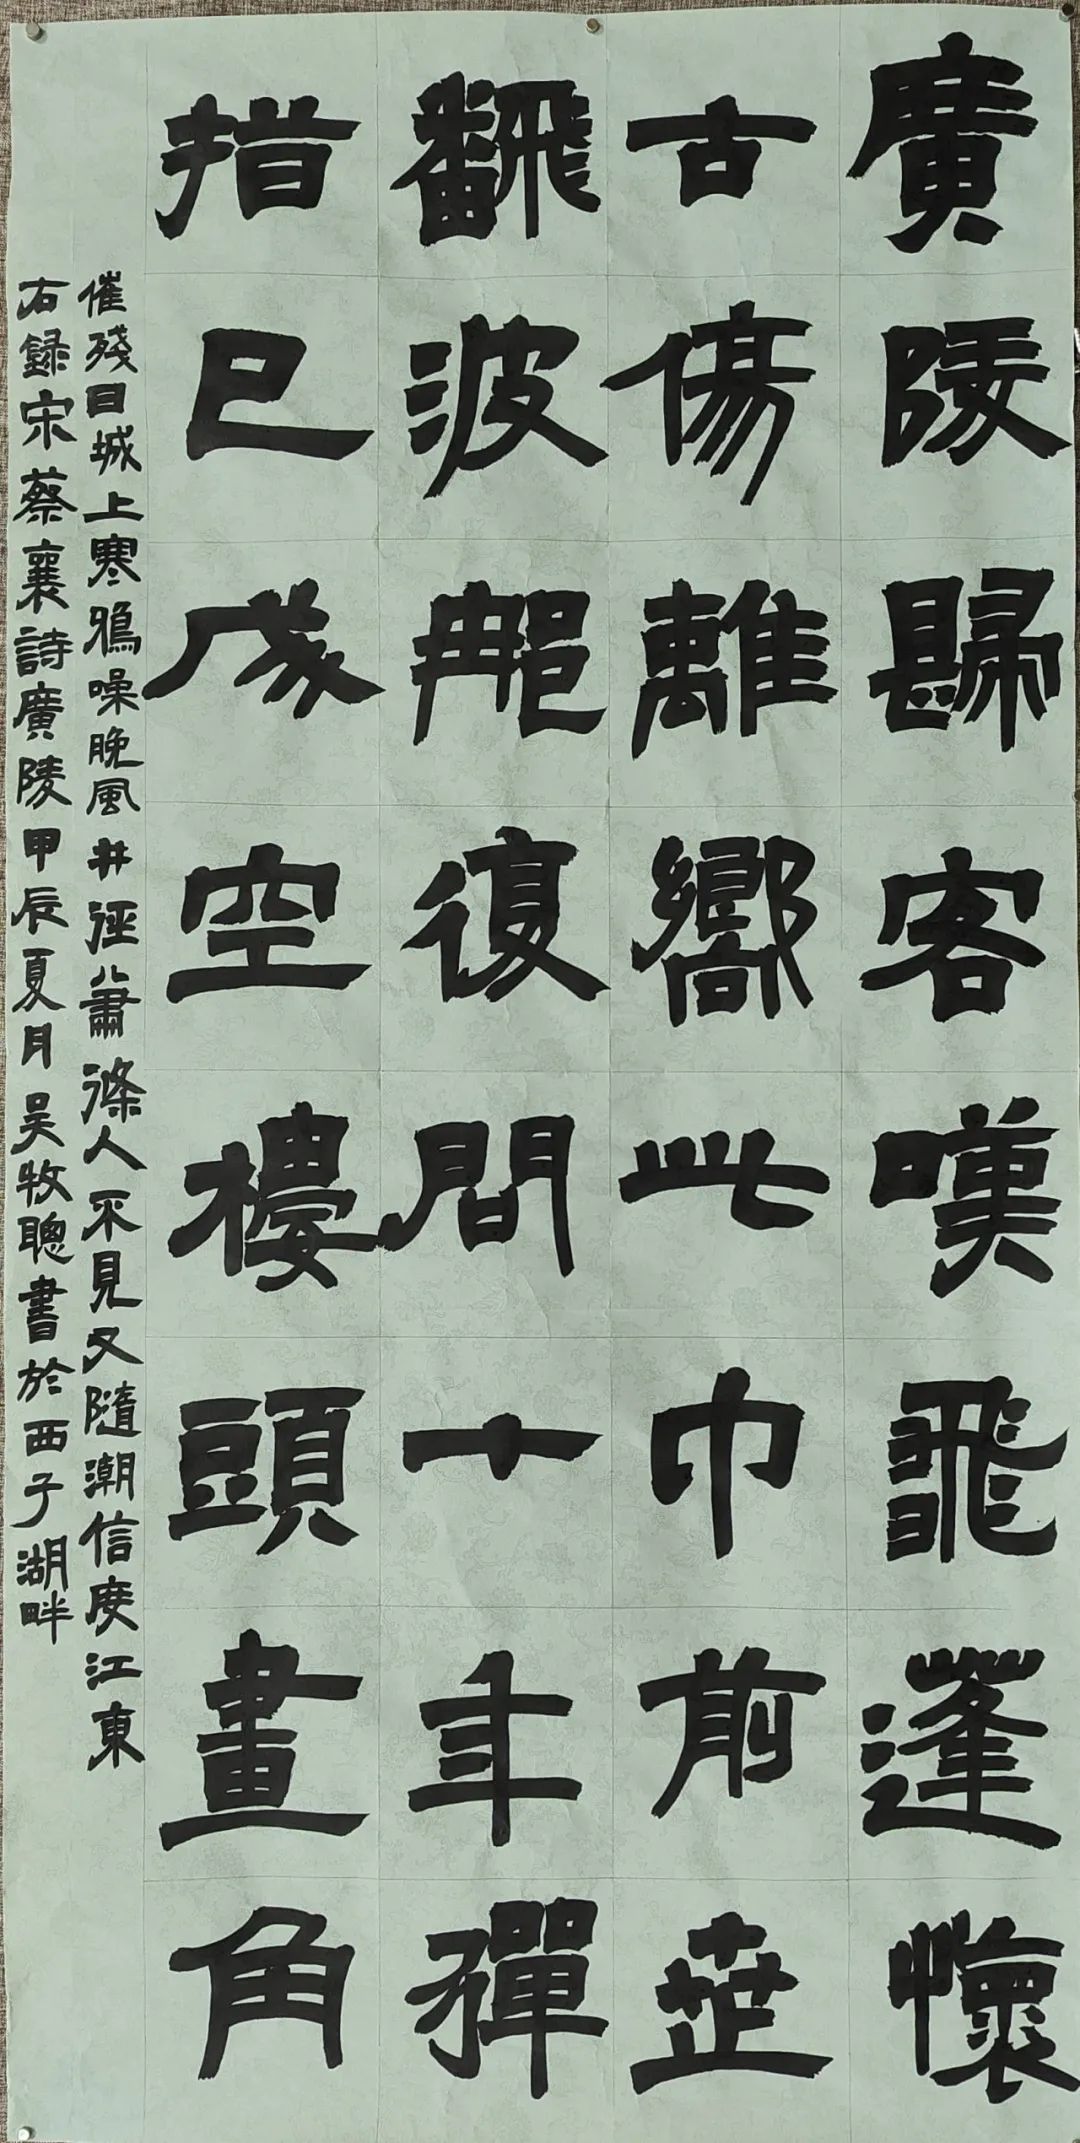 廣陵歸客嘆飛蓬懷
古傷離嚮此中前世
飜波那復問十年彈
指已成空樓頭畫角
催殘日城上寒鴉噪晚風井徑蕭滌人不見又隨潮信度江東
右録宋蔡襄詩廣陵甲辰夏月吴牧聰書於西子湖畔